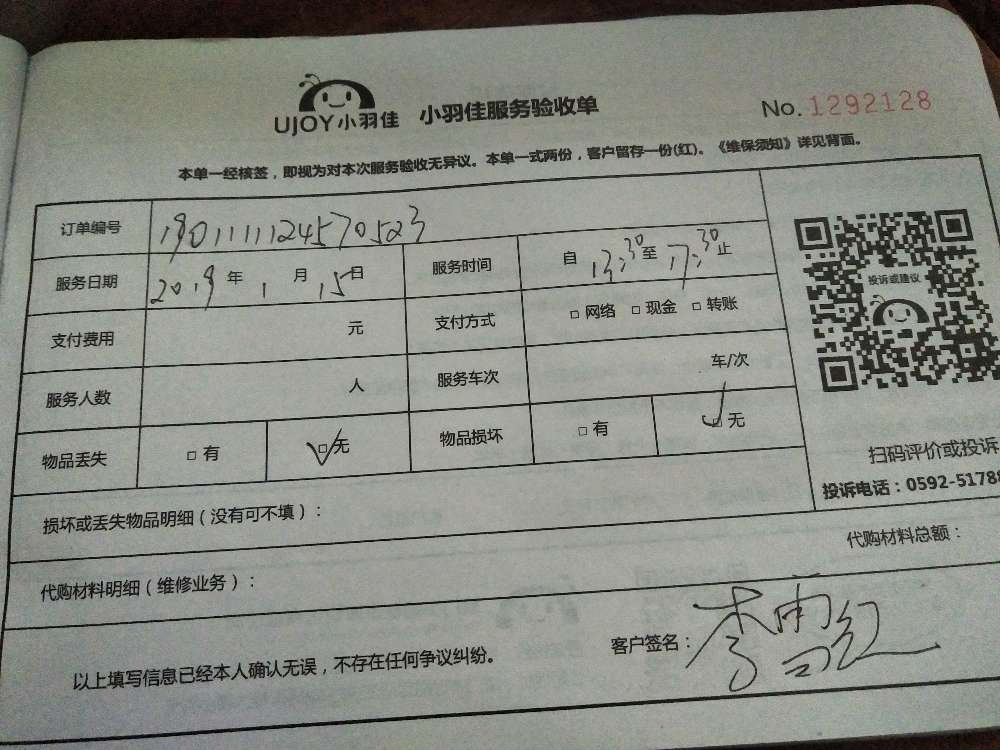 UJOY小羽佳 小羽佳服务验收单 No.1292128
本单一经核签，即视为对本次服务验收无异议。本单一式两份，客户留存一份(红)。《维保须知》详见背面。
订单编号 190111124570523
服务日期 2019年1月15日 服务时间 自13:30至17:30止
投诉或建议
支付费用 元 支付方式 □网络 □现金 □转账
服务人数 人 服务车次 车/次
物品丢失 □有 ☑无 物品损坏 □有 ☑无
扫码评价或投诉
投诉电话：0592-5178
损坏或丢失物品明细（没有可不填）：
代购材料明细（维修业务）： 代购材料总额：
以上填写信息已经本人确认无误，不存在任何争议纠纷。 客户签名：李雪红